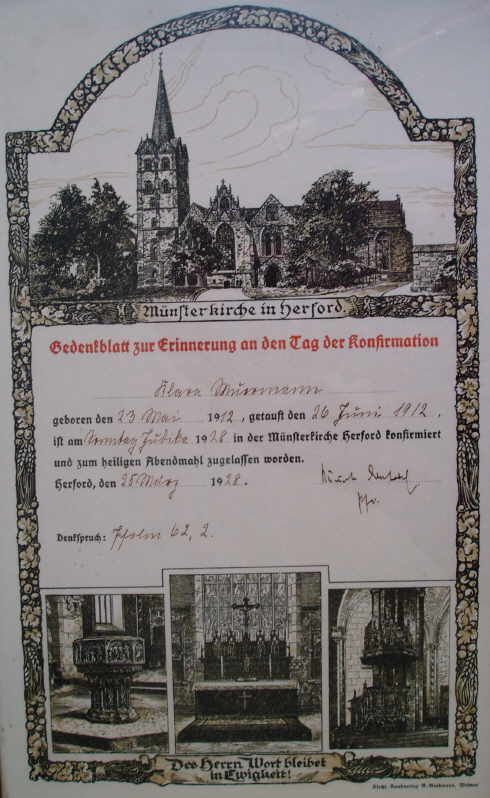 Münsterkirche in Herford
Gedenkblatt zur Erinnerung an den Tag der Konfirmation
Klara
geboren den 23 Mai 1912, getauft den 26 Juni 1912.
ist am Sonntag Judika 1928 in der Münsterkirche Herford konfirmiert
und zum heiligen Abendmahl zugelassen worden.
Herford, den 25 März 1928.
Pfr.
Denkspruch: Psalm 62, 2.
Des Herrn Wort bleibet
in Ewigkeit!
Weimar